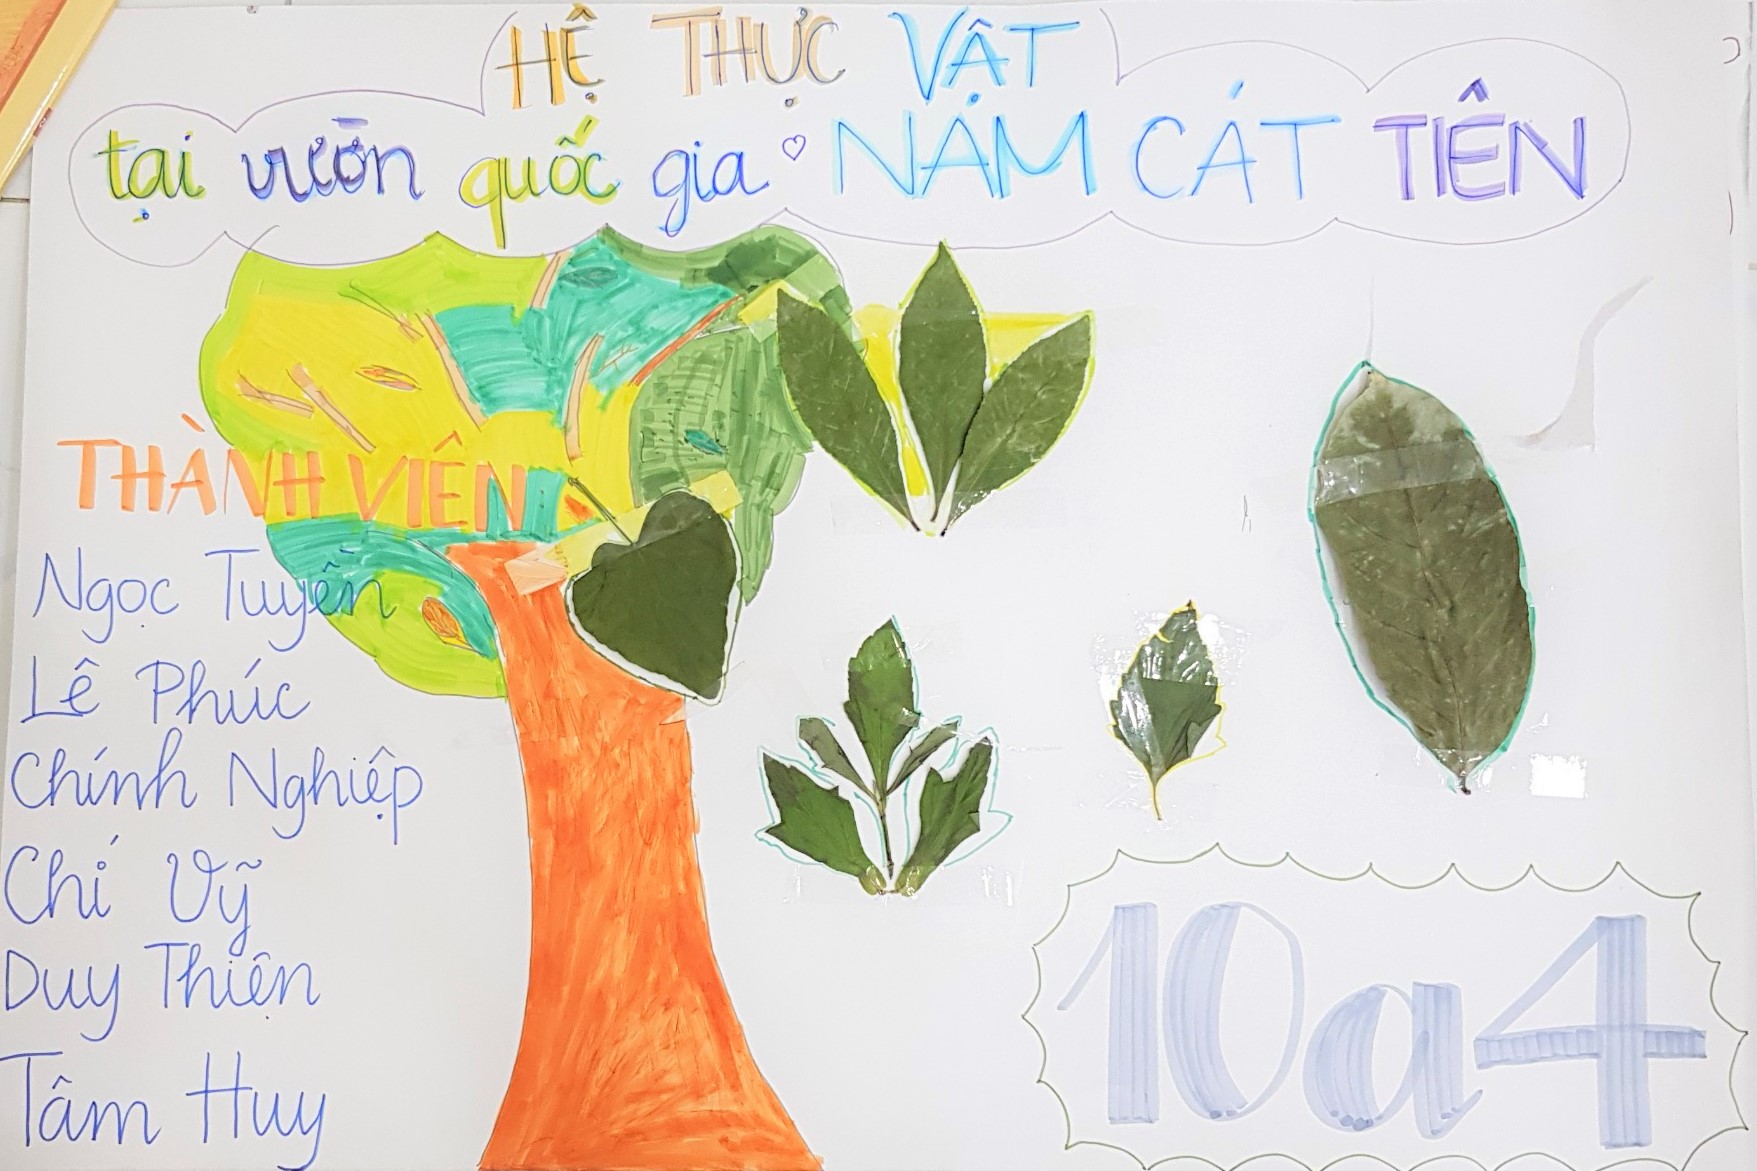 HỆ THỰC VẬT
tại vườn quốc gia NAM CÁT TIÊN
THÀNH VIÊN
Ngọc Tuyền
Lê Phúc
Chính Nghiệp
Chí Vỹ
Duy Thiện
Tâm Huy
10a4